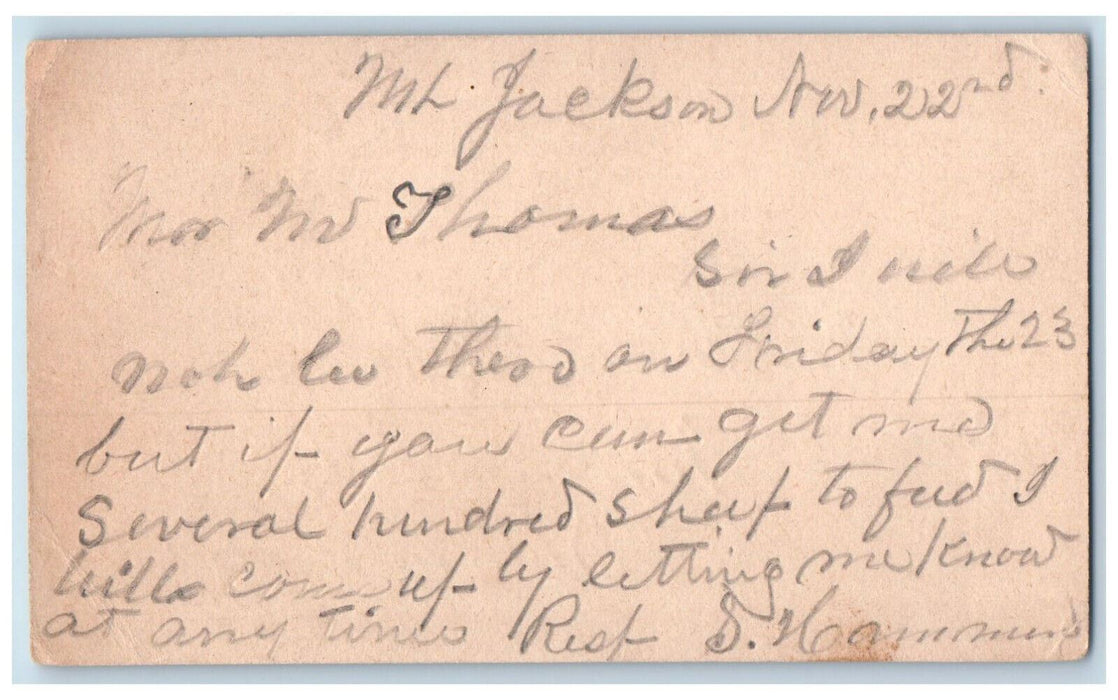 Mt Jackson Nov. 22nd.
Mr Thomas
Sir I will
not be there on Friday the 23
but if you can get me
Several hundred sheep to feed I
will come up by letting me know
at any time Resp S. Hammon